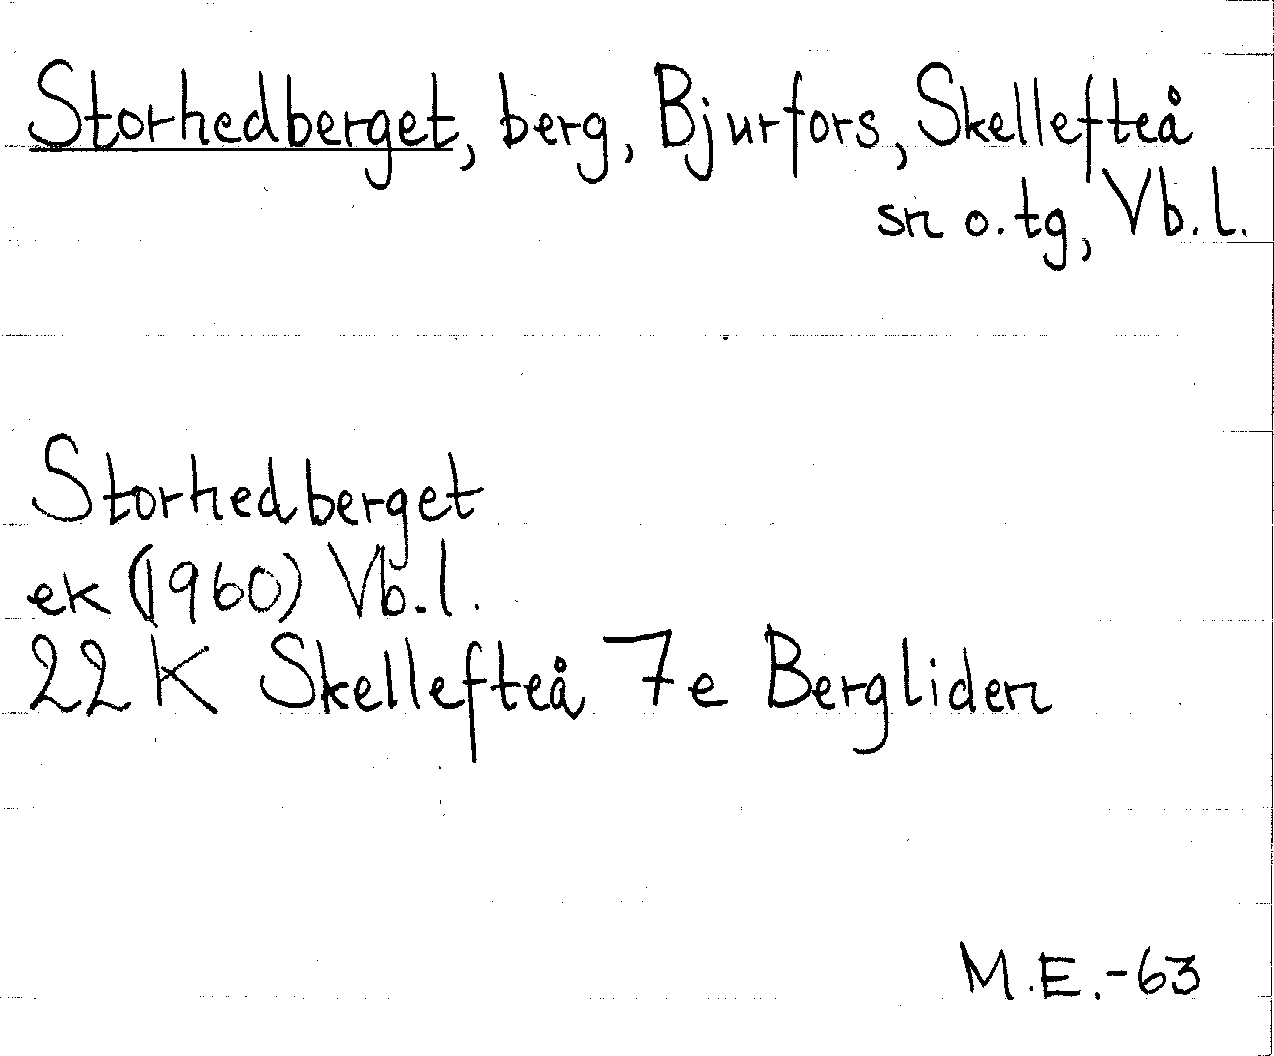 Storhedberget, berg, Bjurfors, Skellefteå
sn o. tg, Vb. l.
Storhedberget
ek (1960) Vb. l.
22 K Skellefteå 7e Bergliden
M.E.-63